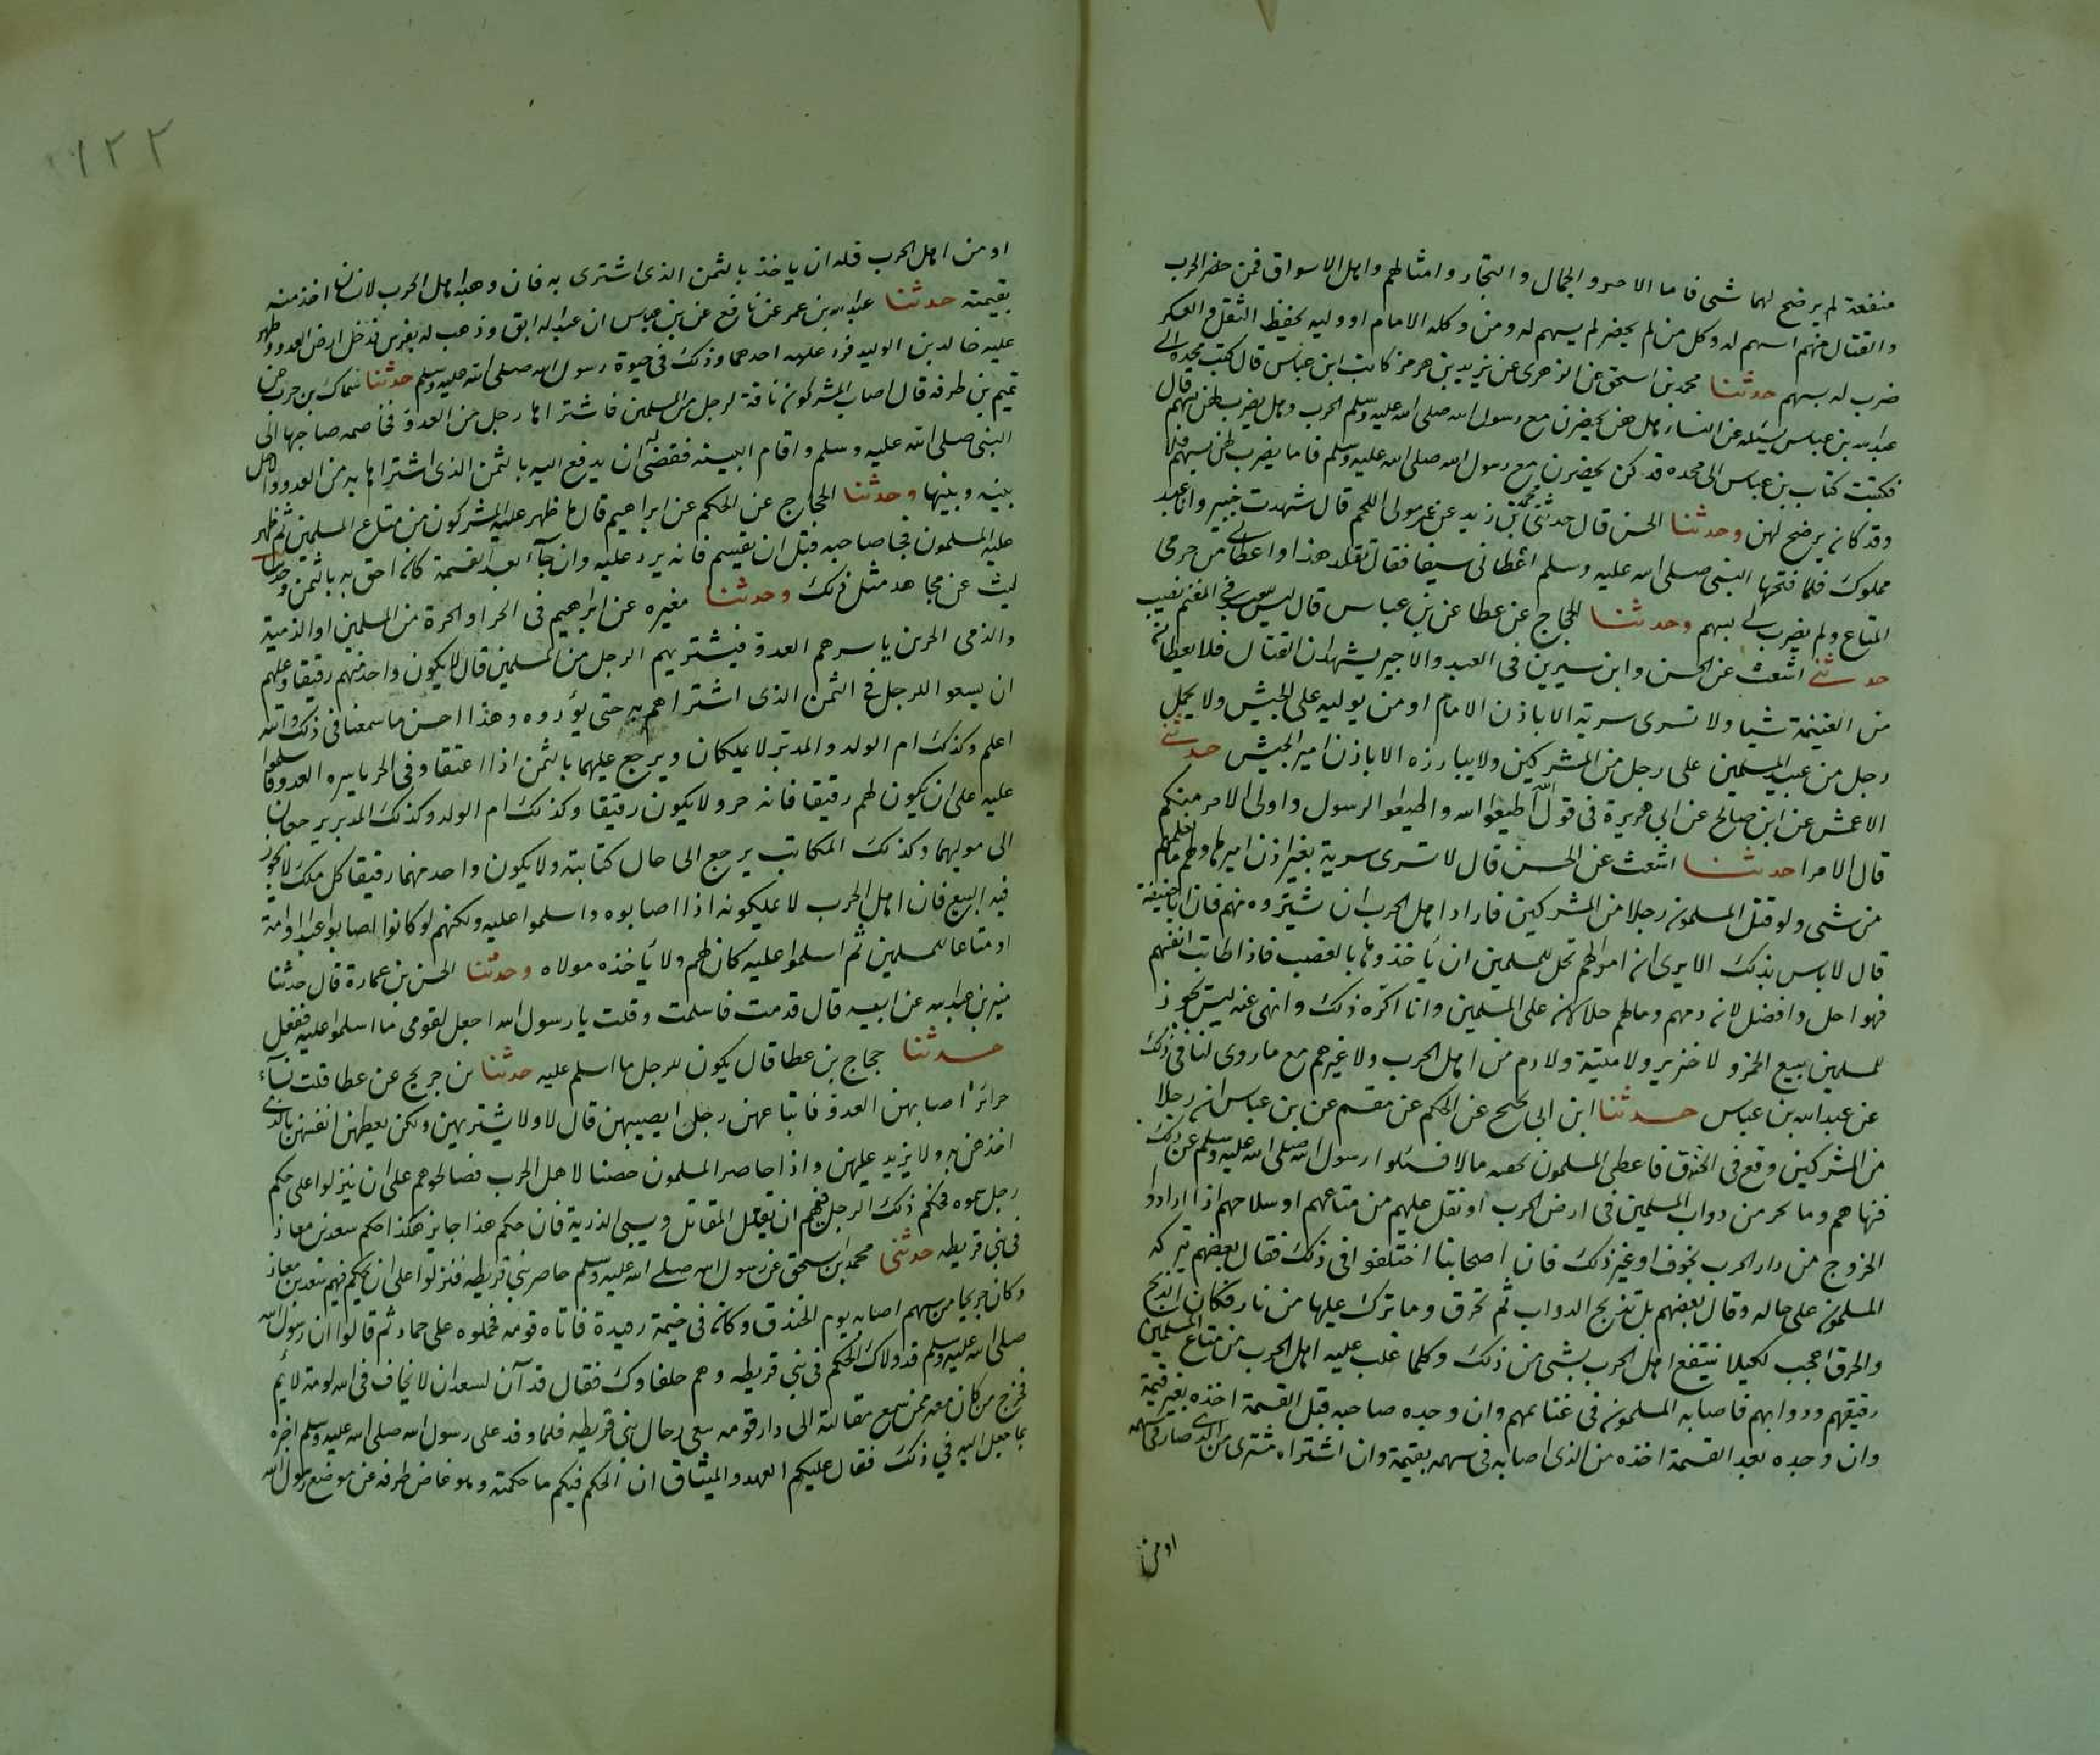 منفعة لم يرضخ لهما شى فاما الاجير والجمال والتجار وامثالهم واهل الاسواق فمن حضر الحرب
والقتال منهم اسهم له وكل من لم يحضر لم يسهم له ومن وكله الامام او وليه بحفظ الثقل والعسكر
ضرب له بسهم حدثنا محمد بن اسحق عن الزهرى عن يزيد بن هرمز كاتب ابن عباس قال كتب نجدة الى
عبدالله بن عباس يسئله عن النساء هل هن يحضرن مع رسول الله صلى الله عليه وسلم الحرب وهل يضرب لهن بسهم قال
فكتبت كتاب بن عباس الى نجده قد كن يحضرن مع رسول الله صلى الله عليه وسلم فاما يضرب لهن بسهم فلا
وقد كان يرضخ لهن وحدثنا الحسن قال حدثنى محمد بن زيد عن عمير مولى اللحم قال شهدت خيبر وانا عبد
مملوك فلما فتحها النبى صلى الله عليه وسلم اعطانى سيفا فقال تقلد هذا واعطانى من خرثى
المتاع ولم يضرب لى بسهم وحدثنا الحجاج عن عطا عن بن عباس قال ليس للعبد فى المغنم نصيب
حدثنى اشعث عن الحسن وابن سيرين فى العبد والاجير يشهدان القتال فلا يعطيان
من الغنيمة شيا ولا تسرى سرية الا باذن الامام او من يوليه على الجيش ولا يحمل
رجل من عبيد المسلمين على رجل من المشركين ولا يبارزه الا باذن امير الجيش حدثنى
الاعمش عن ابى صالح عن ابى هريرة فى قول الله اطيعوا الله واطيعوا الرسول واولى الامر منكم
قال الامرا حدثنا اشعث عن الحسن قال لا تسرى سرية بغير اذن اميرها ولهم ما نفلهم
من شى ولو قتل المسلمون رجلا من المشركين فاراد اهل الحرب ان يشتروه منهم فان ابا حنيفة
قال لا باس بذلك الا يرى ان اموالهم تحل للمسلمين ان ياخذوها بالغصب فاذا طابت انفسهم
فهو احل وافضل لان دمهم ومالهم حلال على المسلمين وانا اكره ذلك وانهى عنه ليس يجوز
للمسلمين بيع الخمر ولا خنزير ولا ميتة ولا دم من اهل الحرب ولا غيرهم مع ما روى لنا فى ذلك
عن عبدالله بن عباس حدثنا ابن ابى نجيح عن الحكم عن مقسم عن بن عباس ان رجلا
من المشركين وقع فى الخندق فاعطى المسلمون بجيفته مالا فسئلوا رسول الله صلى الله عليه وسلم عن ذلك
فنهاهم وما نحر من دواب المسلمين فى ارض الحرب او نقل عليهم من متاعهم او سلاحهم اذا ارادوا
الخروج من دار الحرب بخوف او غير ذلك فان اصحابنا اختلفوا فى ذلك فقال بعضهم يتركه
المسلمون على حاله وقال بعضهم بل تذبح الدواب ثم تحرق وما ترك عليها من نار فكان الذبح
والحرق اعجب لكيلا ينتفع اهل الحرب بشى من ذلك وكلما غلب عليه اهل الحرب من متاع المسلمين
رقيقهم ودوابهم فاصابه المسلمون فى غنايمهم وان وجده صاحبه قبل القسمة اخذه بغير قيمة
وان وجده بعد القسمة اخذه من الذى اصابه فى سهمه بقيمة وان اشتراه مشترى من الذى صار فى سهمه
اومن
او من اهل الحرب فله ان ياخذ بالثمن الذى اشترى به فان وهبه اهل الحرب لانسان اخذ منه
بقيمته حدثنا عبدالله بن عمر عن نافع عن بن عباس ان عبدا له ابق وذهب له بفرس فدخل ارض العدو وظهر
عليه خالد بن الوليد فرد عليه احدهما وذلك فى حيوة رسول الله صلى الله عليه وسلم حدثنا سماك بن حرب عن
تميم بن طرفه قال اصاب المشركون ناقة لرجل من المسلمين فاشتراها رجل من العدو فخاصمه صاحبها الى
النبى صلى الله عليه وسلم واقام البينه فقضى له ان يدفع اليه بالثمن الذى اشتراها به من العدو والا خل
بينه وبينها وحدثنا الحجاج عن الحكم عن ابراهيم قال ما ظهر عليه المشركون من متاع المسلمين ثم ظهر
عليه المسلمون فجا صاحبه قبل ان يقسم فانه يرد عليه وان جآء بعد القسمة كان احق به بالثمن وحدثنا
ليث عن مجاهد مثل ذلك وحدثنا مغيره عن ابراهيم فى الحر او الحرة من المسلمين او الذمية
والذمى الحرين ياسرهم العدو فيشتريهم الرجل من المسلمين قال لا يكون واحد منهم رقيقا وعليهم
ان يسعوا للرجل فى الثمن الذى اشتراهم به حتى يؤدوه وهذا احسن ما سمعنا فى ذلك والله
اعلم وكذلك ام الولد والمدبر لا يملكان ويرجع عليهما بالثمن اذا اعتقا وفى الحر ياسره العدو فاسلموا
عليه على ان يكون لهم رقيقا فانه حر ولا يكون رقيقا وكذلك ام الولد وكذلك المدبر يرجعان
الى موليهما وكذلك المكاتب يرجع الى حال كتابته ولا يكون واحد منهما رقيقا كل ملك لا يجوز
فيه البيع فان اهل الحرب لا يملكونه اذا اصابوه واسلموا عليه ولكنهم لو كانوا اصابوا عبدا او امة
او متاعا للمسلمين ثم اسلموا عليه كان لهم ولا يأخذه مولاه وحدثنا الحسن بن عمارة قال حدثنا
منير بن عبدالله عن ابيه قال قدمت فاسلمت وقلت يا رسول الله اجعل لقومى ما اسلموا عليه ففعل
حدثنا حجاج بن عطا قال يكون للرجل ما اسلم عليه حدثنا بن جريج عن عطا قلت نسآء
حرائر اصابهن العدو فابتاعهن رجل ايصيبهن قال لا ولا يشتريهن ولكن يعطيهن انفسهن بالذى
اخذهن به ولا يزيد عليهن واذا حاصر المسلمون حصنا لاهل الحرب فصالحوهم على ان ينزلوا على حكم
رجل سموه فحكم ذلك الرجل فيهم ان يقتل المقاتل ويسبى الذرية فان حكم هذا جايز هكذا حكم سعد بن معاذ
فى بنى قريظه حدثنى محمد ابن اسحق عن رسول الله صلى الله عليه وسلم حاصر بنى قريظه فنزلوا على ان يحكم فيهم سعد بن معاذ
وكان جريحا من سهم اصابه يوم الخندق وكان فى خيمة رفيدة فاتاه قومه فحملوه على حمار ثم قالوا ان رسول الله
صلى الله عليه وسلم قد ولاك الحكم فى بنى قريظه وهم حلفاوك فقال قد آن لسعد ان لا يخاف فى الله لومة لائم
فخرج من كان معه ممن سمع مقالته الى دار قومه ينعى رحال بنى قريظه فلما وفد على رسول الله صلى الله عليه وسلم اخبره
بما جعل اليه فى ذلك فقال عليكم العهد والميثاق ان الحكم فيكم ما حكمته وهو غاض طرفه عن موضع رسول الله